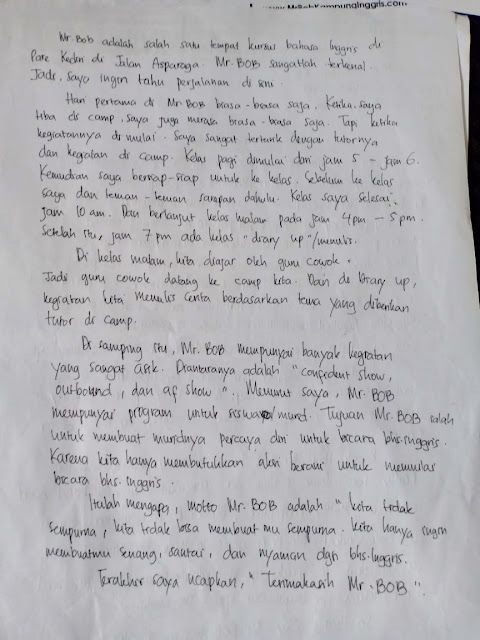 www.MrBobKampungInggris.com
Mr. Bob adalah salah satu tempat kursus bahasa Inggris di
Pare Kediri di Jalan Asparaga. Mr. BOB sangatlah terkenal.
Jadi, saya ingin tahu perjalanan di sini.
Hari pertama di Mr BOB biasa-biasa saja. Ketika saya
tiba di camp, saya juga merasa biasa-biasa saja. Tapi ketika
kegiatannya di mulai. Saya sangat tertarik dengan tutornya
dan kegiatan di camp. Kelas pagi dimulai dari jam 5 - jam 6.
Kemudian saya bersiap-siap untuk ke kelas. Sebelum ke kelas
saya dan teman-teman sarapan dahulu. Kelas saya selesai
jam 10 am. Dan berlanjut kelas malam pada jam 4 pm - 5 pm.
Setelah itu, jam 7 pm ada kelas "diary up"/menulis.
Di kelas malam, kita diajar oleh guru cowok.
Jadi guru cowok datang ke camp kita. Dan di diary up,
kegiatan kita menulis cerita berdasarkan tema yang diberikan
tutor di camp.
Di samping itu, Mr. BOB mempunyai banyak kegiatan
yang sangat asik. Diantaranya adalah "confident show,
outbound, dan af show". Menurut saya, Mr. BOB
mempunyai program untuk siswa/murid. Tujuan Mr. BOB ialah
untuk membuat muridnya percaya diri untuk bicara bhs. Inggris.
Karena kita hanya membutuhkan aksi berani untuk memulai
bicara bhs. Inggris.
Itulah mengapa, motto Mr. BOB adalah "kita tidak
sempurna, kita tidak bisa membuat mu sempurna. Kita hanya ingin
membuatmu senang, santai, dan nyaman dgn bhs. Inggris.
Terakhir saya ucapkan, "Terimakasih Mr. BOB".